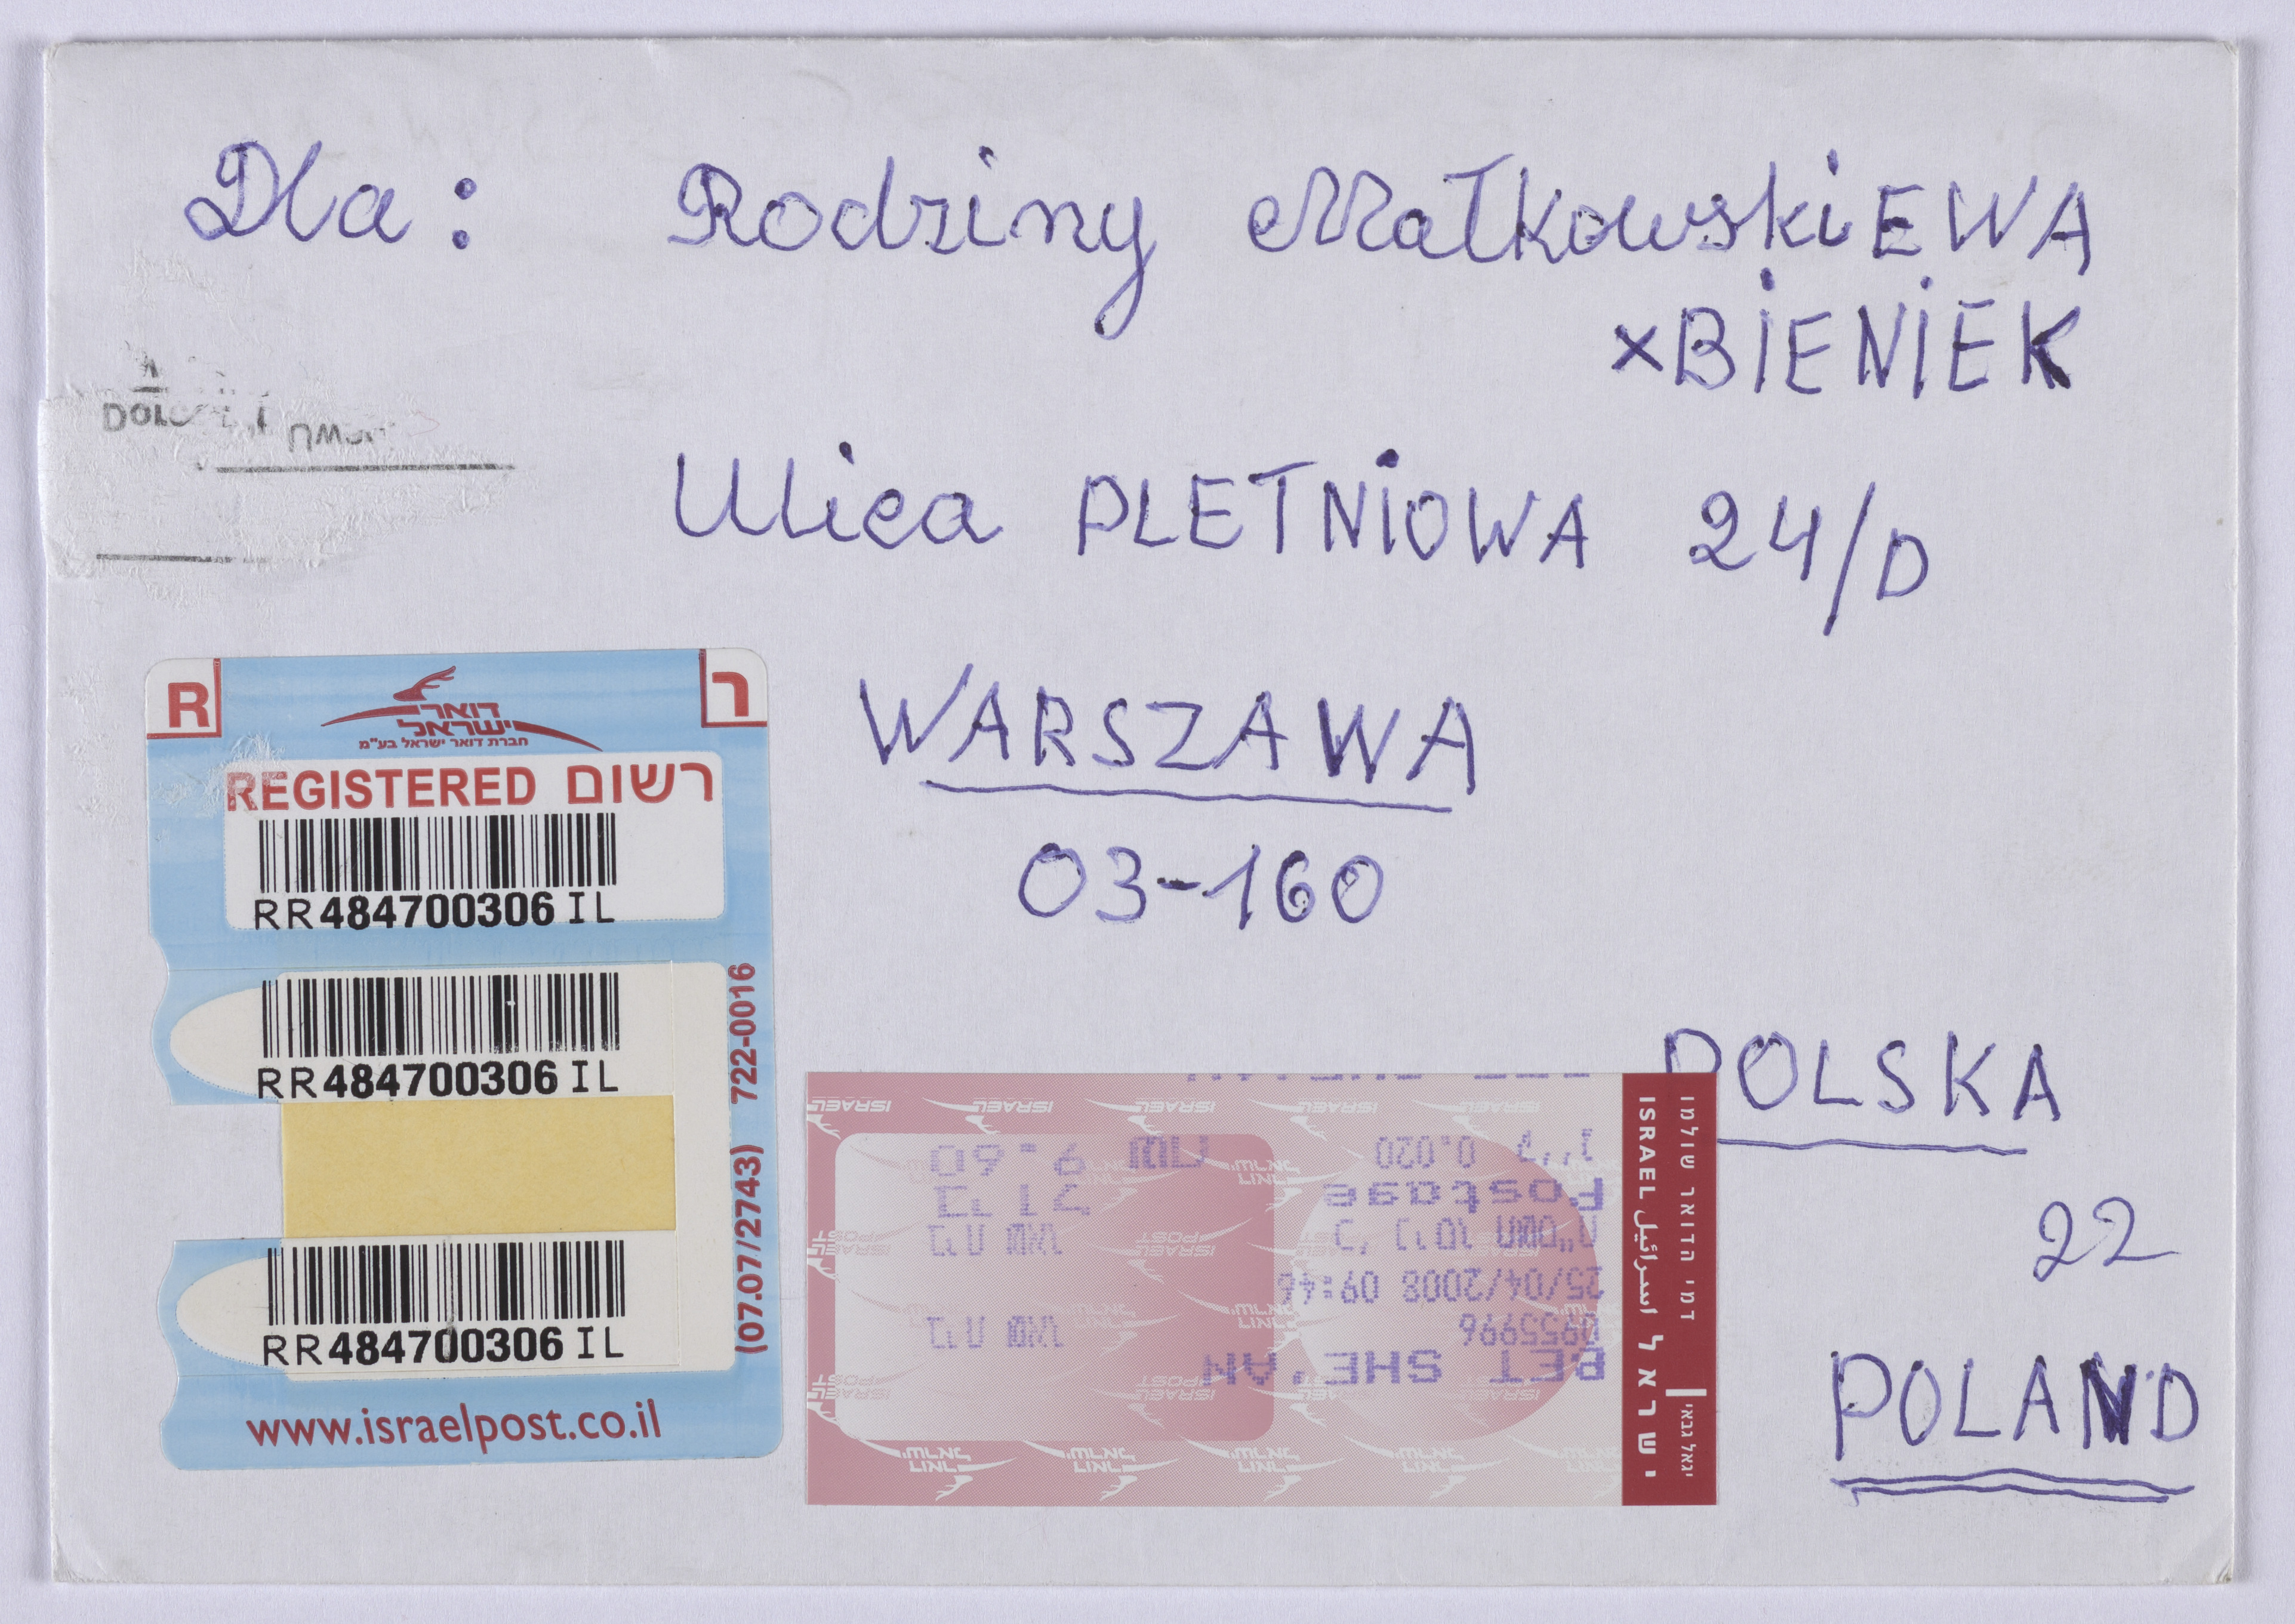 Dla: Rodziny Małkowski EWA
x BIENIEK
Ulica PLETNIOWA 24/D
WARSZAWA
03-160
POLSKA
22
POLAND
R
ר
דואר
ישראל
חברת דואר ישראל בע"מ
REGISTERED רשום
RR484700306IL
RR484700306IL
RR484700306IL
722-0016
(07.07/2743)
www.israelpost.co.il
BET SHE'AN
0955996
25/04/2008 09:46
Postage
0.020
9.60
ISRAEL اسرائيل ישראל
דמי הדואר שולמו
יגאל גבאי